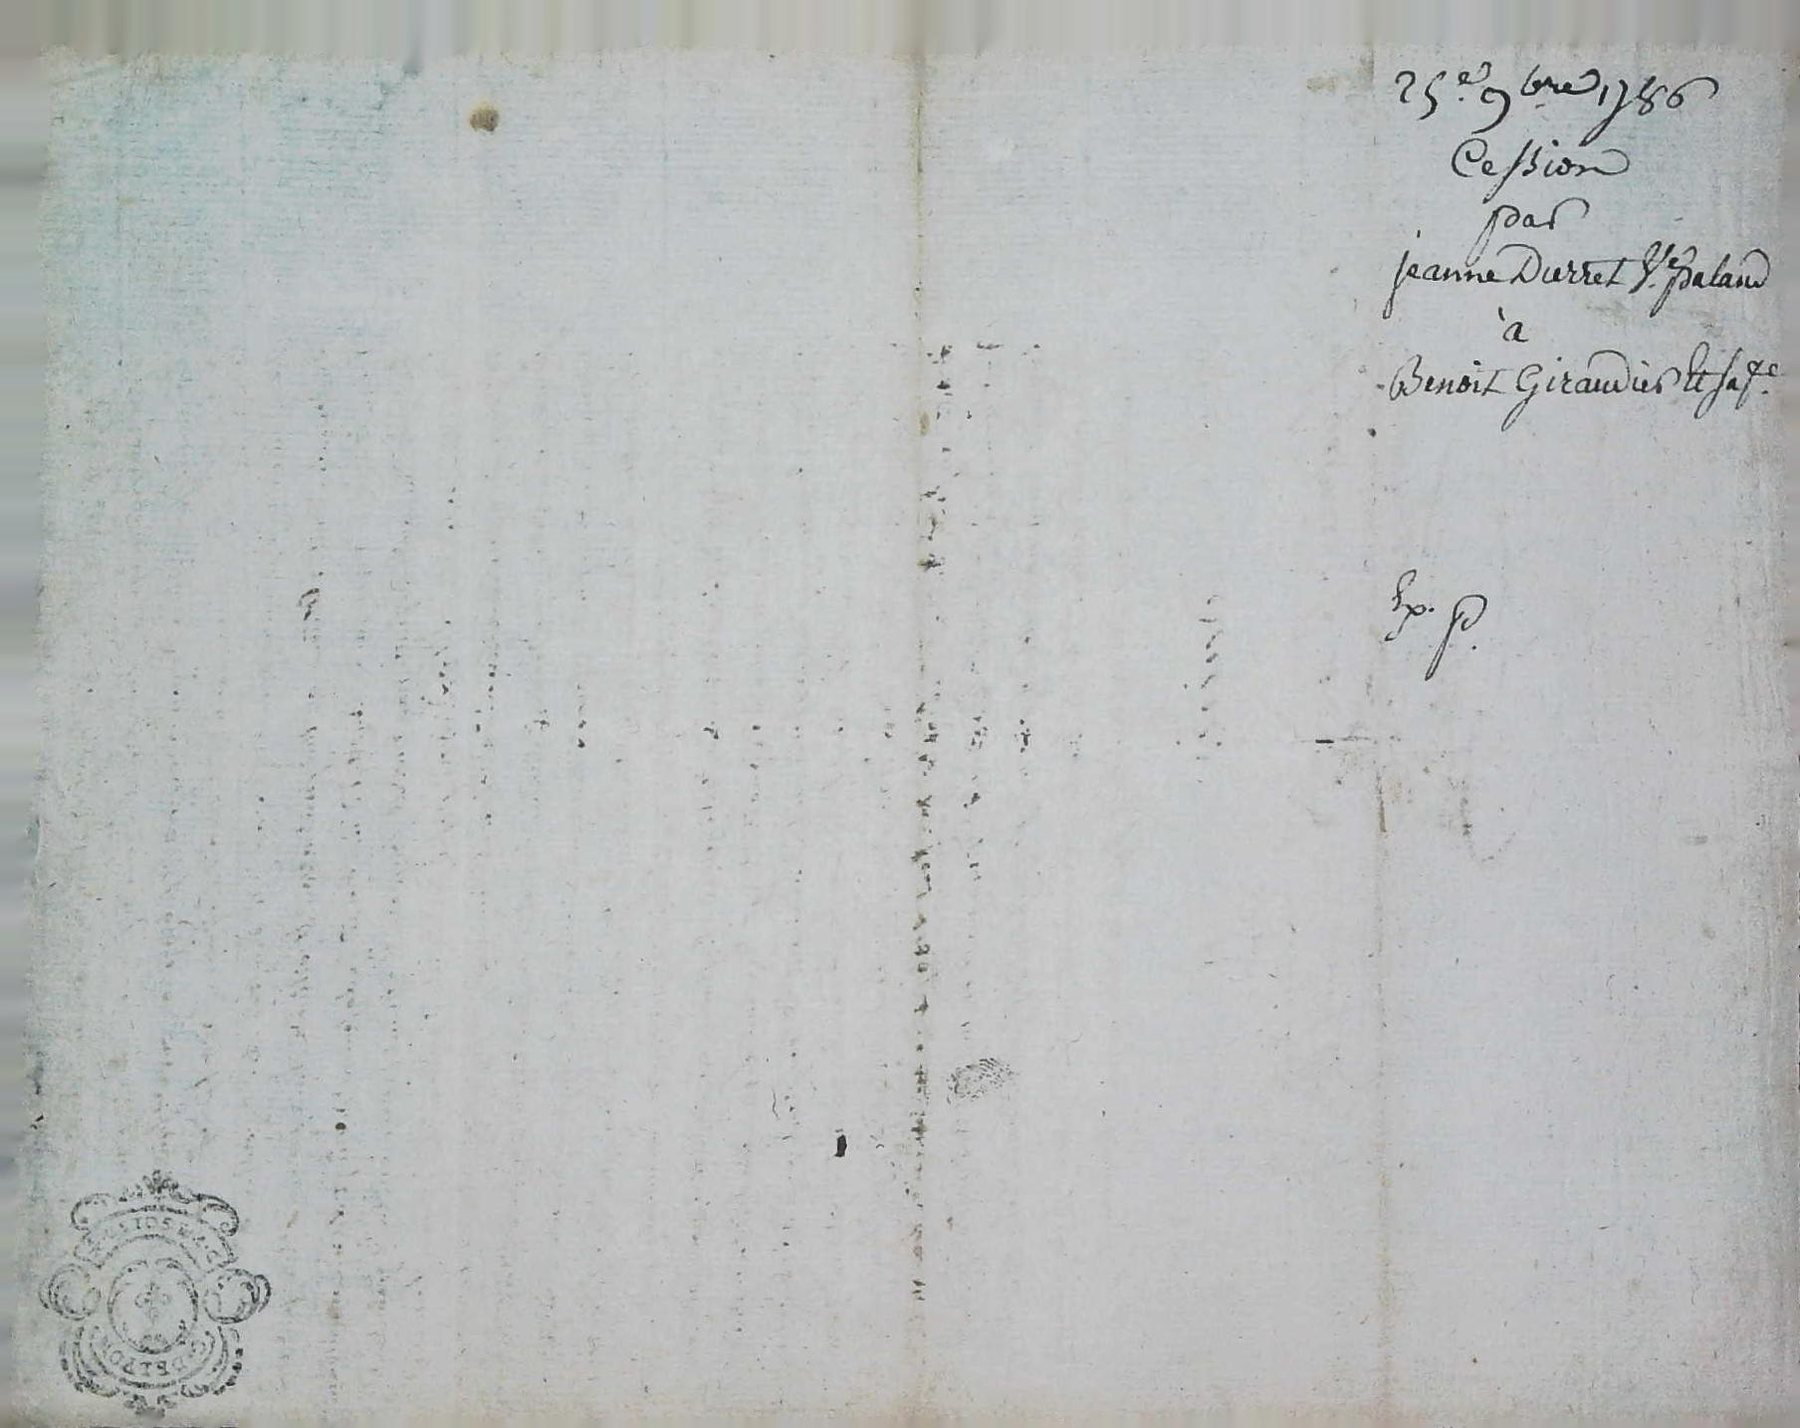 25.e 9bre 1786
Cession
par
jeanne Durret Ve. palaud
à
Benoit Giraudier et sa fe.
Ex. p.